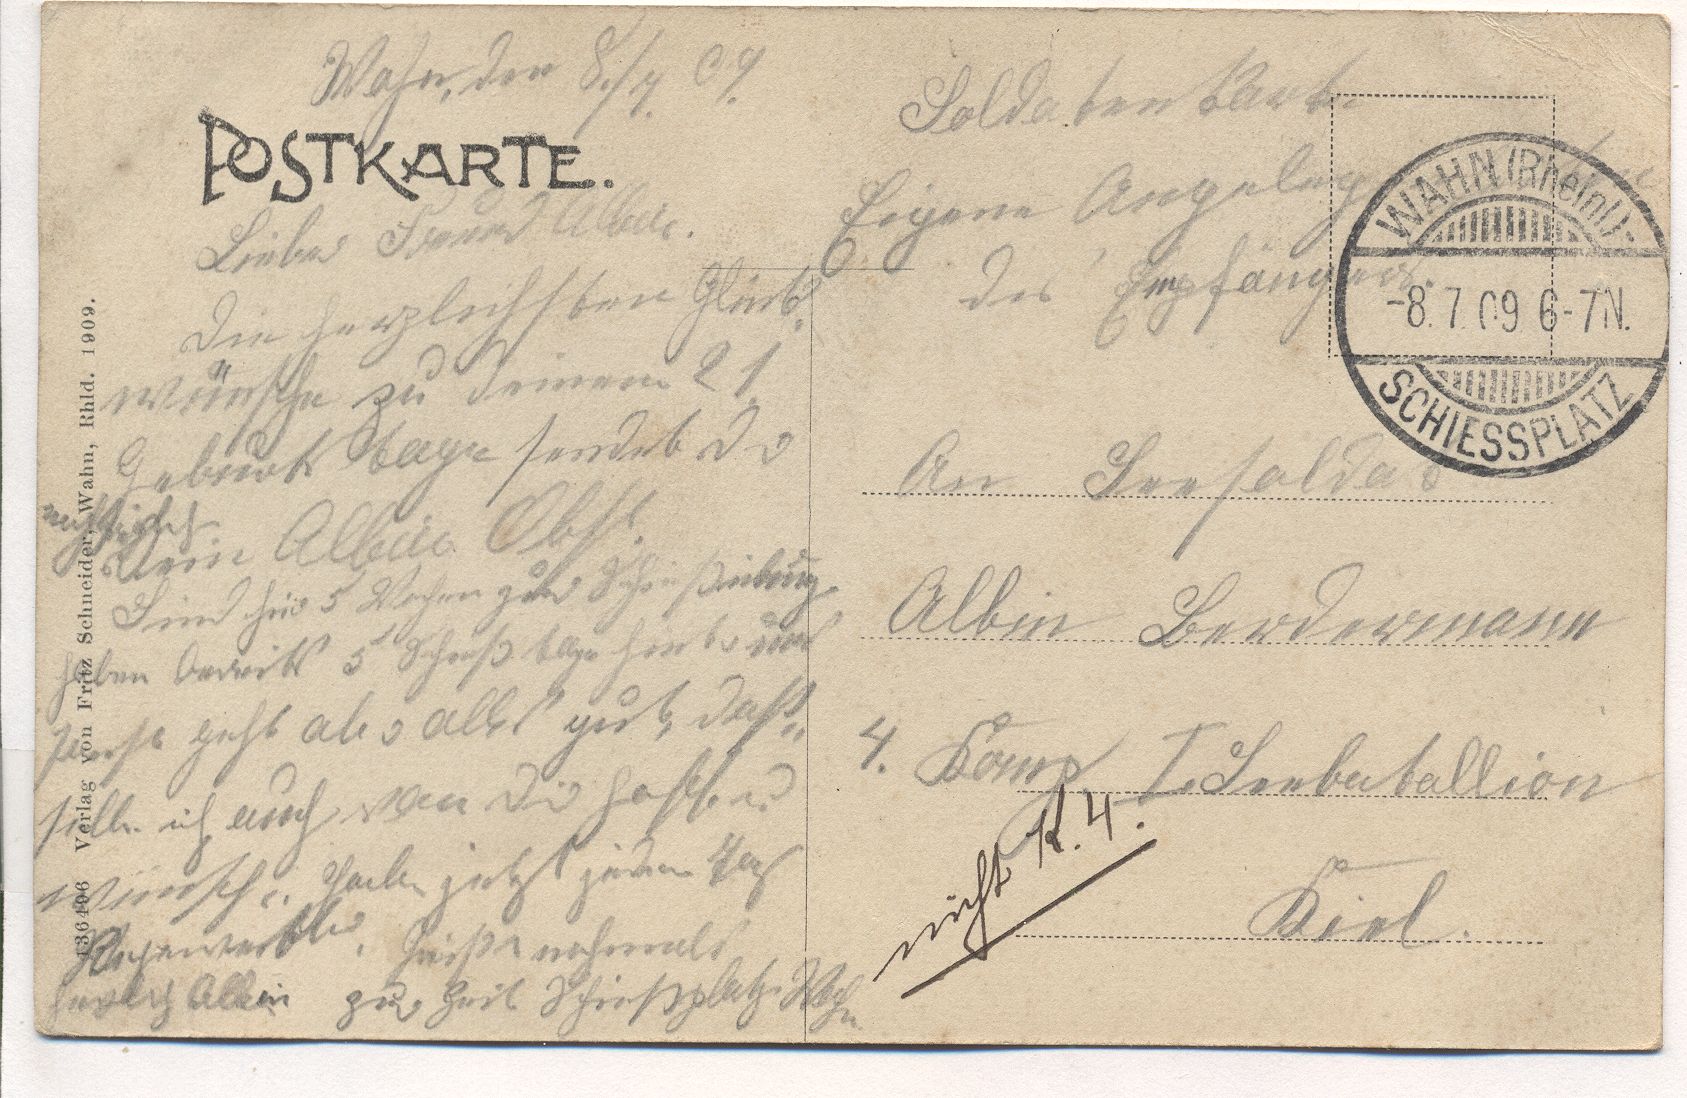 Wahn, den 8./7. 09.
POSTKARTE.
Lieber Freund Albin.
Die herzlichsten Glück-
wünsche zu deinem 21.
Geburtstage sendet dir
Dein Albin Obst.
Sind hier 5 Wochen zur Schießübung,
haben bereits 5 Schießtage hinter uns
sonst geht alles gut, dass-
selbe ich auch von Dir hoffe u.
wünsche. Haben jetzt jeden Tag
Regenwetter. Grüße nochmals
herzlich Albin zur Zeit Schießplatz Wahn
436406 Verlag von Fritz Schneider, Wahn, Rhld. 1909.
Soldatenkarte.
Eigene Angelegenheiten
des Empfängers.
WAHN (Rheinl.)
-8. 7. 09 6-7N.
SCHIESSPLATZ
An Seesoldat
Albin Berdermann
4. Komp I. Seebatallion
nicht K. 4.
Kiel.